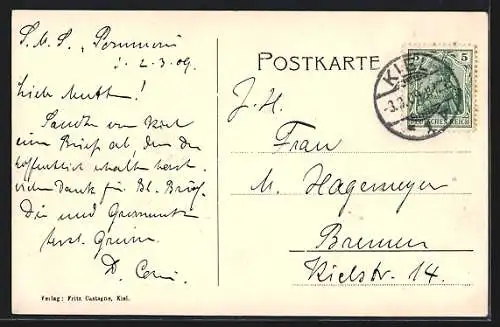 S.M.S. Pommern
d. 2.3.09.
Liebe Mutti!
Sandte von Kiel
einen Brief ab, den du
hoffentlich erhalten hast.
vielen Dank für Bl. Brief.
Dir und Grossmutter
herzl. Grüsse
D.
Verlag: Fritz Castagne, Kiel.
POSTKARTE
KIEL
5
DEUTSCHES REICH
I. H.
Frau
M. Hagemeyer
Bremen
Kielstr. 14.